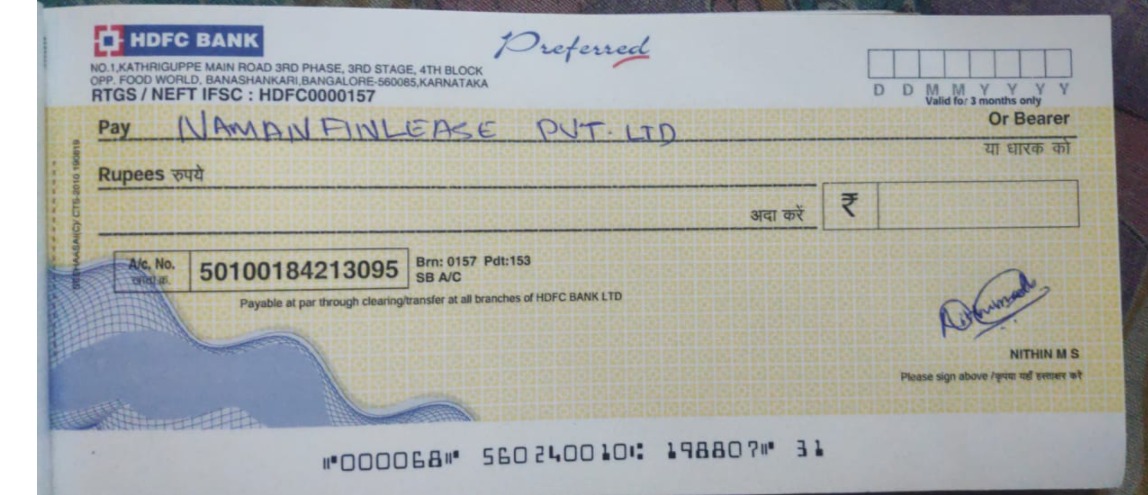 HDFC BANK
Preferred
NO.1,KATHRIGUPPE MAIN ROAD 3RD PHASE, 3RD STAGE, 4TH BLOCK
OPP. FOOD WORLD, BANASHANKARI,BANGALORE-560085,KARNATAKA
RTGS / NEFT IFSC : HDFC0000157
D D M M Y Y Y Y
Valid for 3 months only
Pay NAMAN FINLEASE PVT. LTD Or Bearer
या धारक को
Rupees रुपये
अदा करें ₹
A/c. No. 50100184213095 Brn: 0157 Pdt:153
SB A/C
Payable at par through clearing/transfer at all branches of HDFC BANK LTD
NITHIN M S
Please sign above /कृपया यहाँ हस्ताक्षर करे
⑈000068⑈ 560240010⑆ 198807⑈ 31